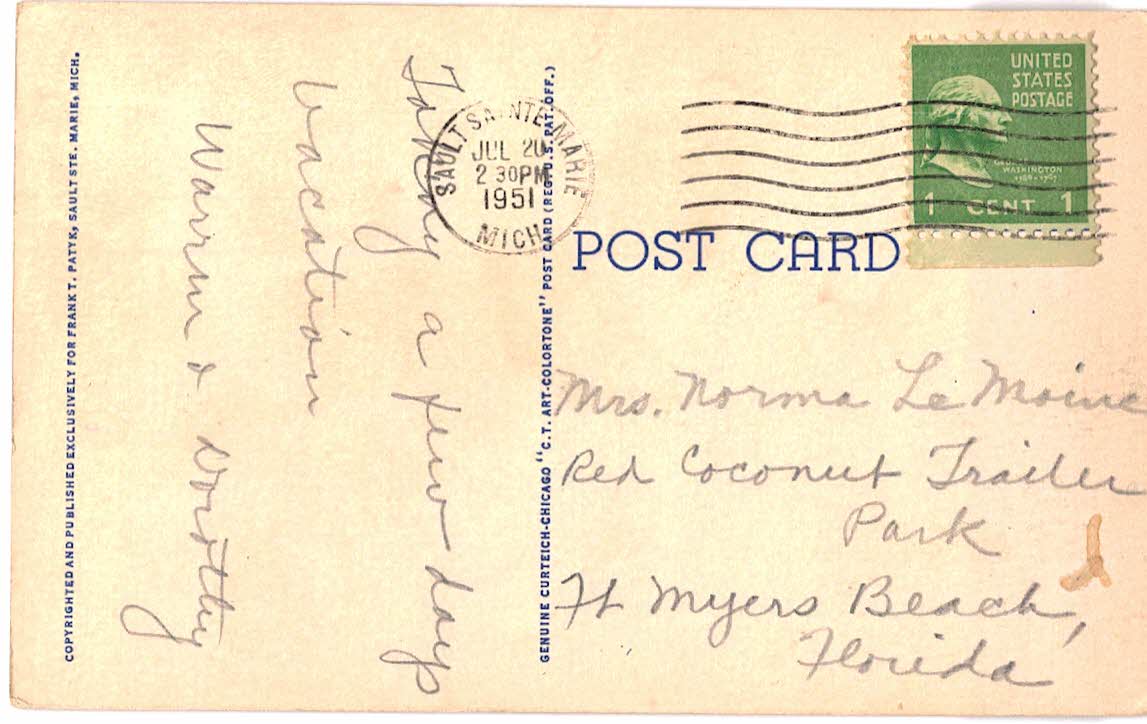 COPYRIGHTED AND PUBLISHED EXCLUSIVELY FOR FRANK T. PATYK, SAULT STE. MARIE, MICH.
Taking a few days
vacation
Warren & Dorothy
SAULT SAINTE MARIE
JUL 20
2 30PM
1951
MICH
GENUINE CURTEICH-CHICAGO "C.T. ART-COLORTONE" POST CARD (REG. U.S. PAT. OFF.)
UNITED
STATES
POSTAGE
GEORGE
WASHINGTON
1 CENT 1
POST CARD
Mrs. Norma Le Moine
Red Coconut Trailer
Park
Ft Myers Beach,
Florida